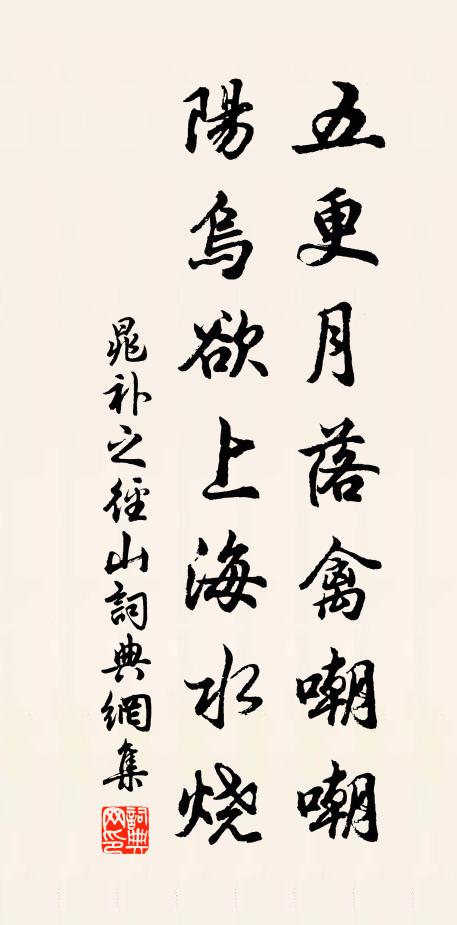 五更月落禽嘲嘲
陽烏欲上海水烧
晁补之徑山詞典網集
詞典網印